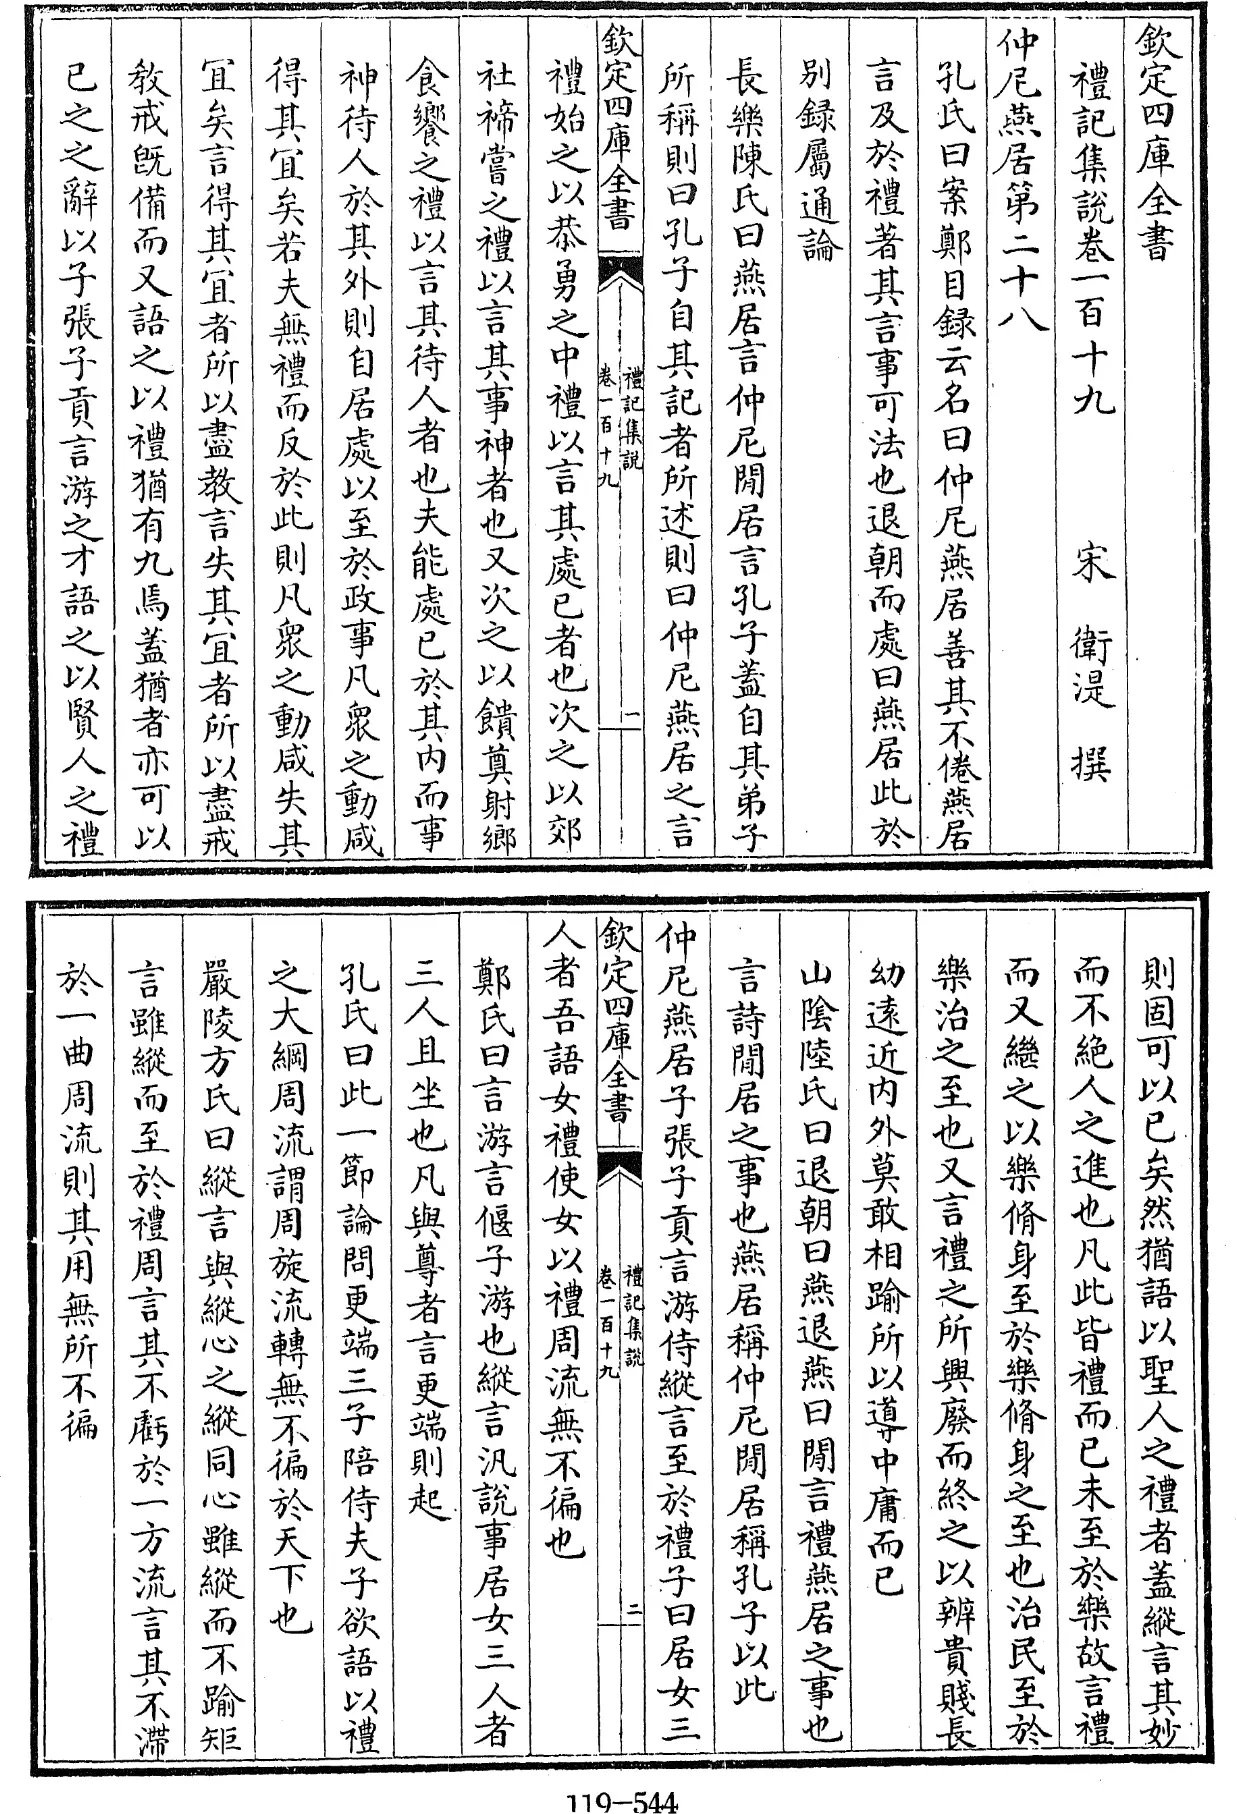 欽定四庫全書
禮記集說卷一百十九
宋 衛湜 撰
仲尼燕居第二十八
孔氏曰案鄭目録云名曰仲尼燕居善其不倦燕居
言及於禮著其言事可法也退朝而處曰燕居此於
别録屬通論
長樂陳氏曰燕居言仲尼閒居言孔子蓋自其弟子
所稱則曰孔子自其記者所述則曰仲尼燕居之言
欽定四庫全書
禮記集說
卷一百十九
一
禮始之以恭勇之中禮以言其處已者也次之以郊
社禘嘗之禮以言其事神者也又次之以饋奠射鄉
食饗之禮以言其待人者也夫能處已於其内而事
神待人於其外則自居處以至於政事凡衆之動咸
得其宜矣若夫無禮而反於此則凡衆之動咸失其
宜矣言得其宜者所以盡教言失其宜者所以盡戒
教戒既備而又語之以禮猶有九焉蓋猶者亦可以
已之之辭以子張子貢言游之才語之以賢人之禮
則固可以已矣然猶語以聖人之禮者蓋縱言其妙
而不絶人之進也凡此皆禮而已未至於樂故言禮
而又繼之以樂脩身至於樂脩身之至也治民至於
樂治之至也又言禮之所興廢而終之以辨貴賤長
幼遠近内外莫敢相踰所以導中庸而已
山陰陸氏曰退朝曰燕退燕曰閒言禮燕居之事也
言詩閒居之事也燕居稱仲尼閒居稱孔子以此
仲尼燕居子張子貢言游侍縱言至於禮子曰居女三
欽定四庫全書
禮記集說
卷一百十九
二
人者吾語女禮使女以禮周流無不徧也
鄭氏曰言游言偃子游也縱言汎說事居女三人者
三人且坐也凡與尊者言更端則起
孔氏曰此一節論問更端三子陪侍夫子欲語以禮
之大綱周流謂周旋流轉無不徧於天下也
嚴陵方氏曰縱言與縱心之縱同心雖縱而不踰矩
言雖縱而至於禮周言其不虧於一方流言其不滯
於一曲周流則其用無所不徧
119-544